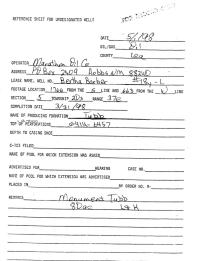 REFERENCE SHEET FOR UNDESIGNATED WELLS
DATE 5/1/98
OIL/GAS Oil
COUNTY Lea
OPERATOR Marathon Oil Co
ADDRESS PO Box 2409 Hobbs NM 88240
LEASE NAME, WELL NO. Bertha Barber #18y-L
FOOTAGE LOCATION FROM THE S LINE AND 665 FROM THE W LINE
SECTION 5 TOWNSHIP 20S RANGE 37E
COMPLETION DATE 3/31/98
NAME OF PRODUCING FORMATION Tubb
TOP OF PERFORATIONS 6416-6457
DEPTH TO CASING SHOE
C-123 FILED
NAME OF POOL FOR WHICH EXTENSION WAS ASKED
ADVERTISED FOR HEARING CASE NO.
NAME OF POOL FOR WHICH EXTENSION WAS ADVERTISED
PLACED IN BY ORDER NO. R-
REMARKS Monument Tubb